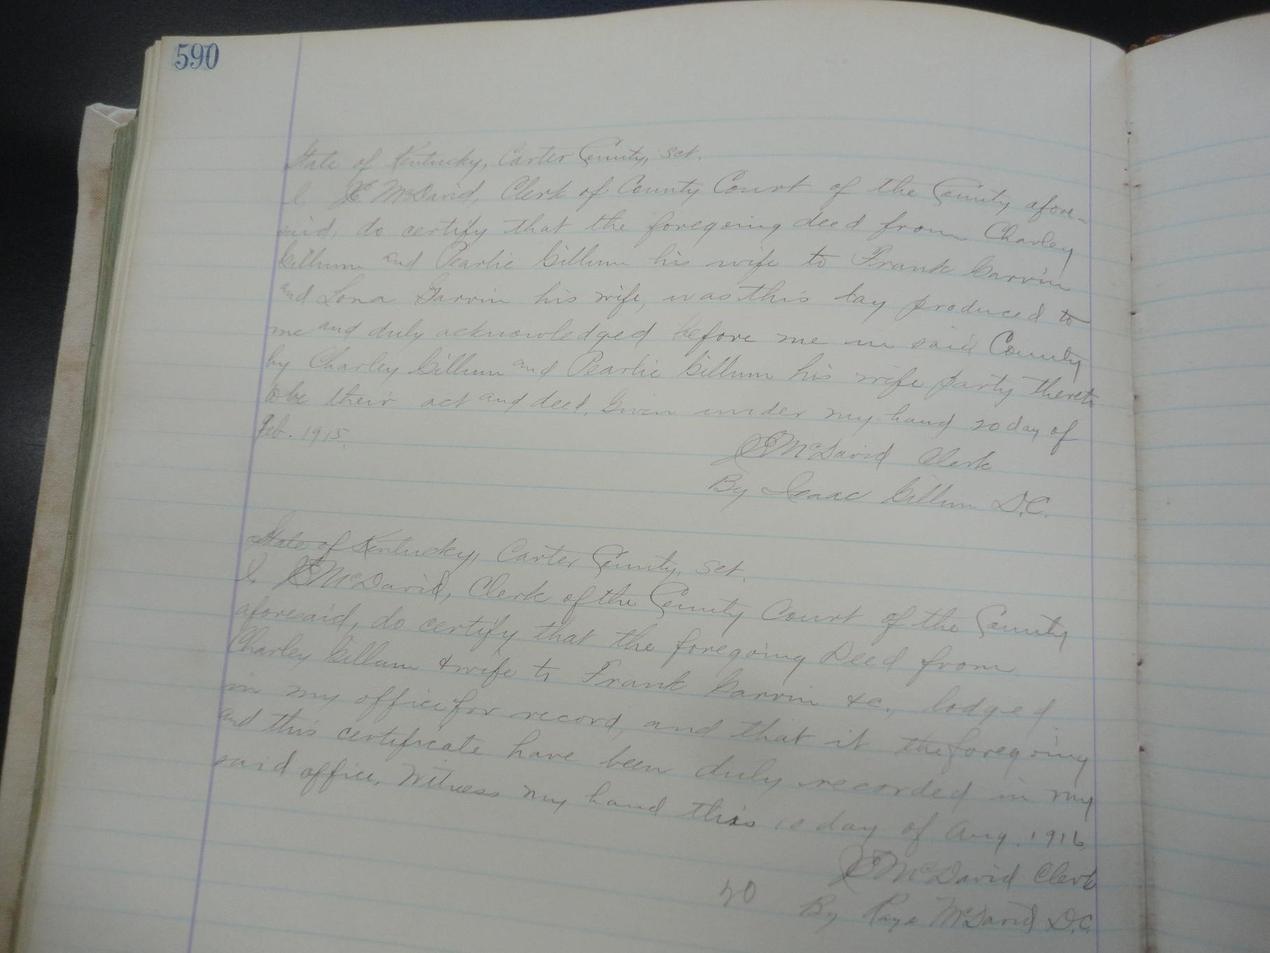 590
State of Kentucky, Carter County, sct.
I, McDavid, Clerk of County Court of the County afore-
said, do certify that the foregoing deed from Charley
Gillum and Pearlie Gillum his wife to Frank Garvin
and Lona Garvin his wife, was this day produced to
me and duly acknowledged before me in said County
by Charley Gillum and Pearlie Gillum his wife party thereto
to be their act and deed. Given under my hand 20 day of
Feb. 1915.
McDavid Clerk
By Isaac Gillum D.C.
State of Kentucky, Carter County, sct.
I, McDavid, Clerk of the County Court of the County
aforesaid, do certify that the foregoing Deed from
Charley Gillum & wife to Frank Garvin &c., lodged
in my office for record, and that it the foregoing
and this certificate have been duly recorded in my
said office. Witness my hand this 10 day of Aug. 1916
McDavid Clerk
By McDavid D.C.